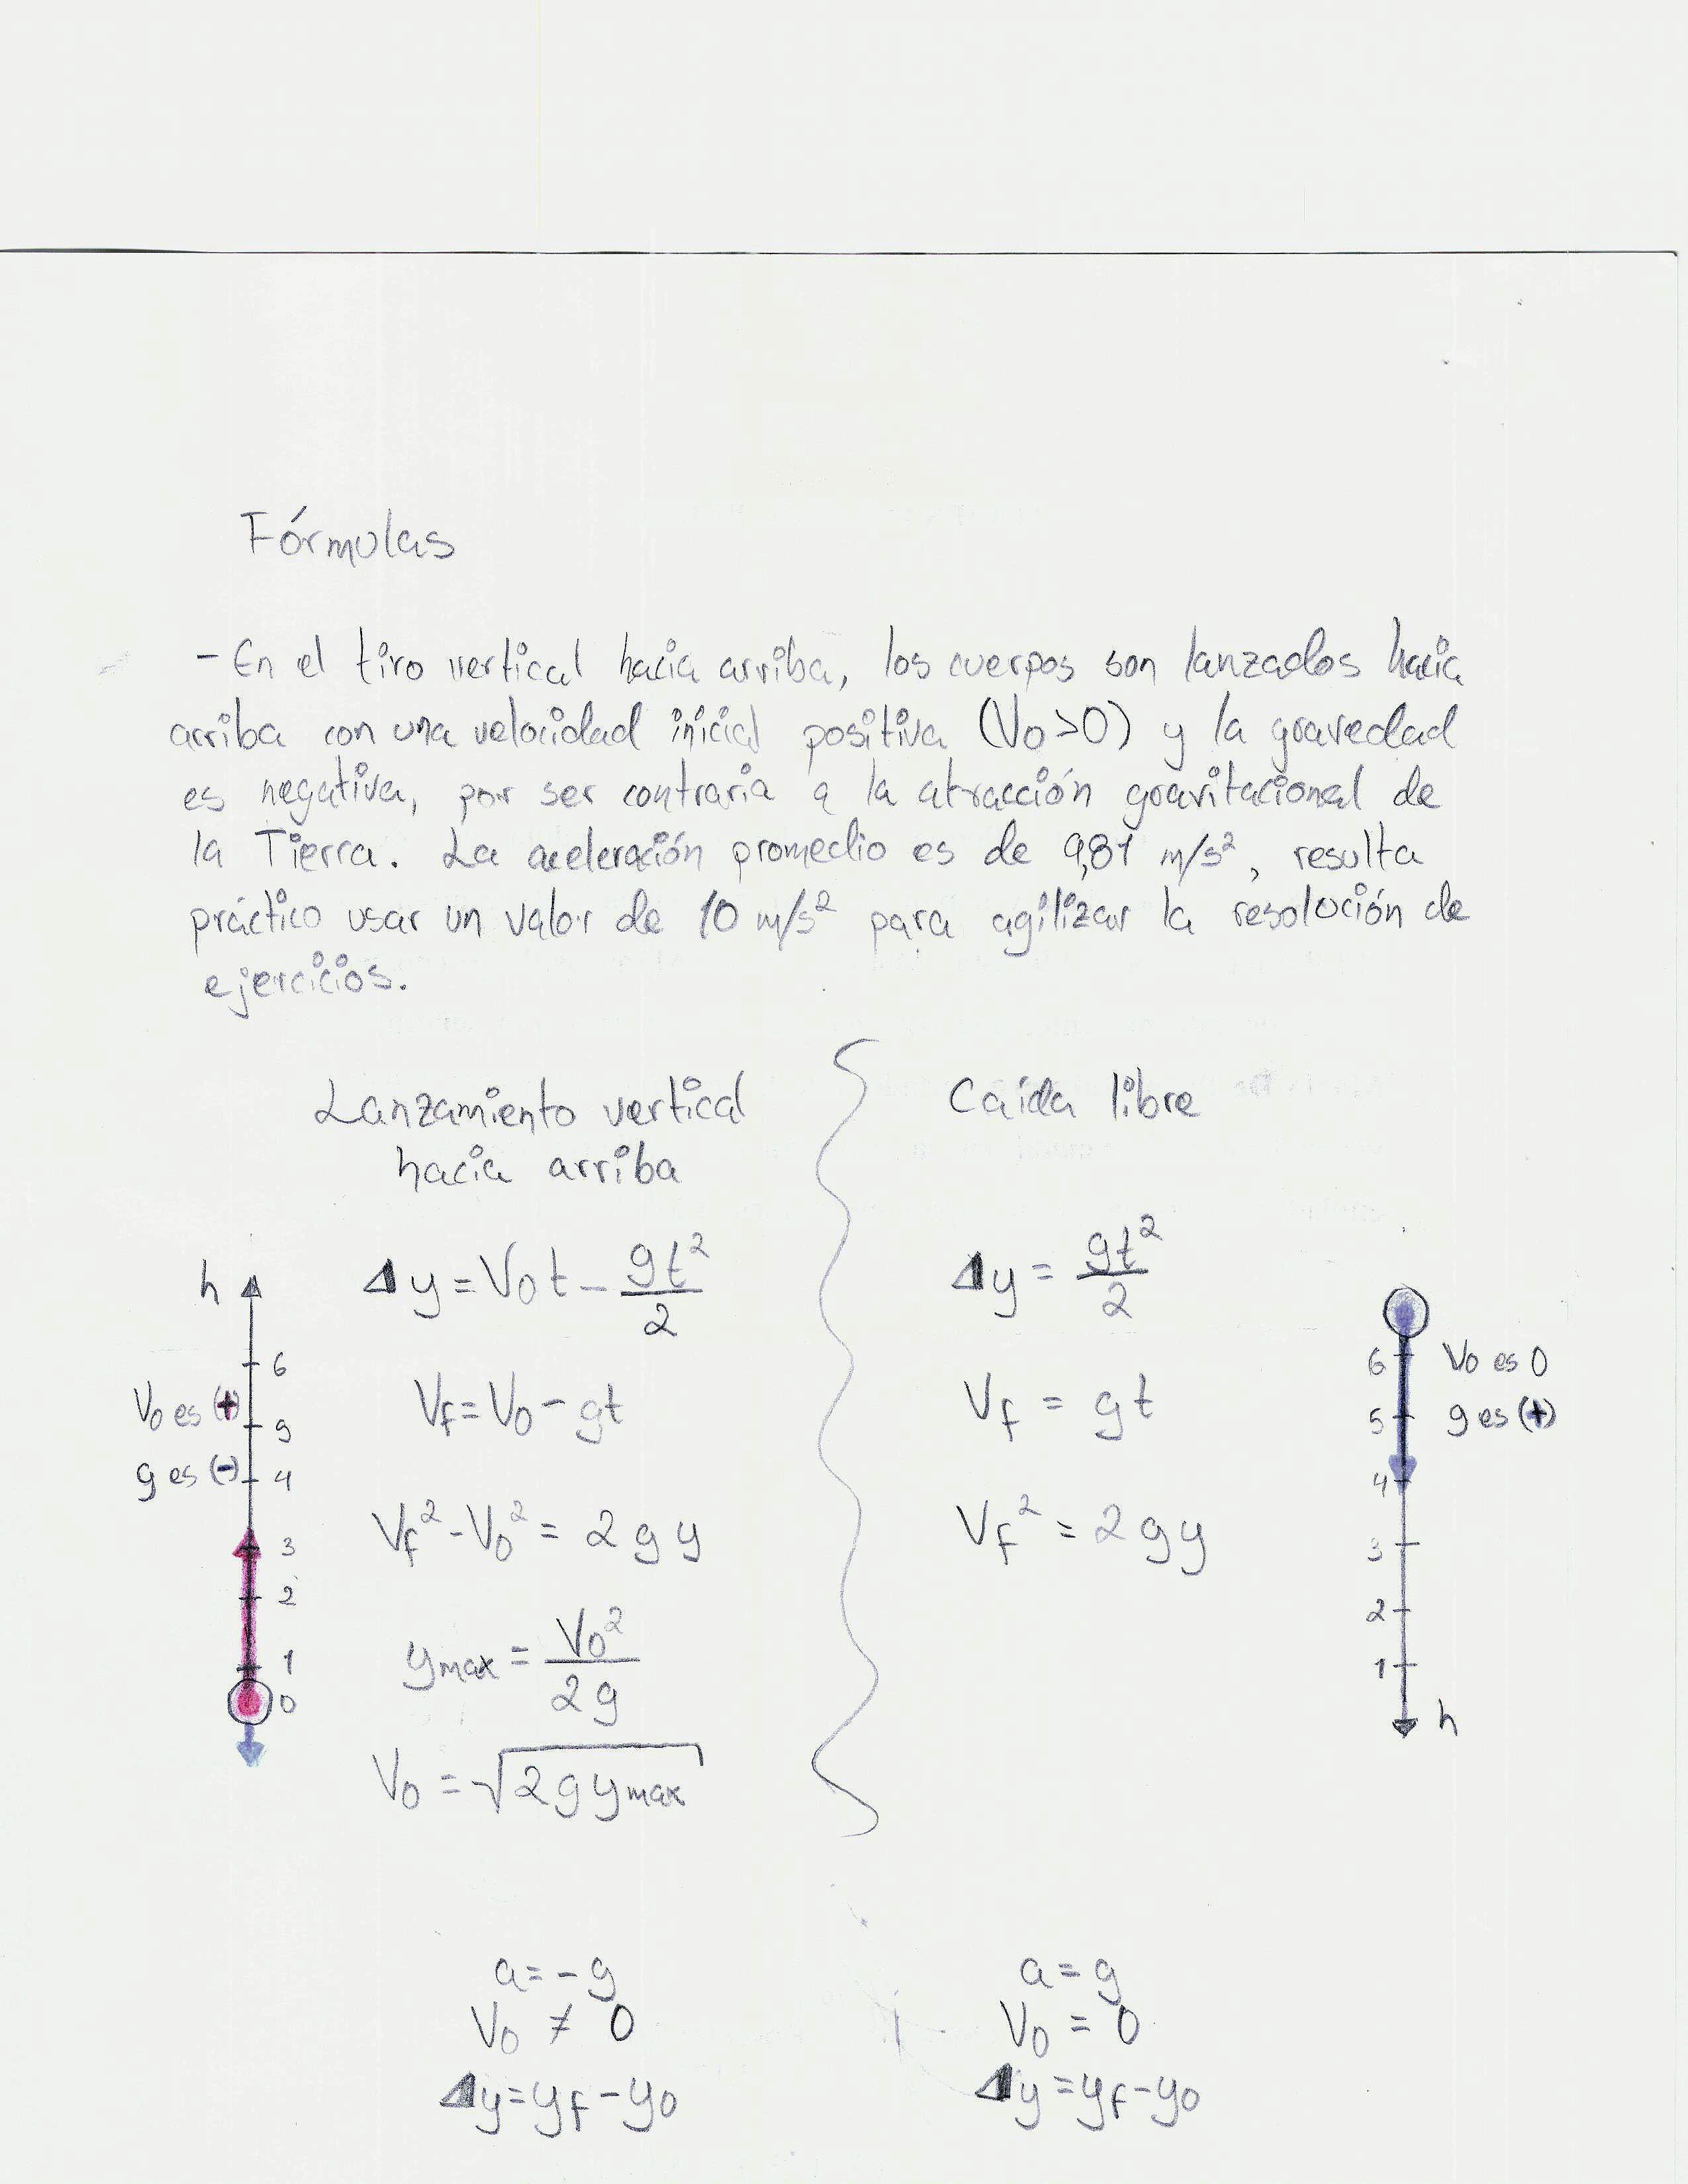 Fórmulas
- En el tiro vertical hacia arriba, los cuerpos son lanzados hacia
arriba con una velocidad inicial positiva (V₀>0) y la gravedad
es negativa, por ser contraria a la atracción gravitacional de
la Tierra. La aceleración promedio es de 9,81 m/s², resulta
práctico usar un valor de 10 m/s² para agilizar la resolución de
ejercicios.
Lanzamiento vertical
hacia arriba
h
6
V₀ es (+)
5
g es (-)
4
3
2
1
0
Δy = V₀t - gt²/2
Vf = V₀ - gt
Vf² - V₀² = 2gy
ymax = V₀²/2g
V₀ = √2gymax
a = -g
V₀ ≠ 0
Δy = yf - y₀
Caída libre
Δy = gt²/2
Vf = gt
Vf² = 2gy
6 V₀ es 0
5 g es (+)
4
3
2
1
h
a = g
V₀ = 0
Δy = yf - y₀